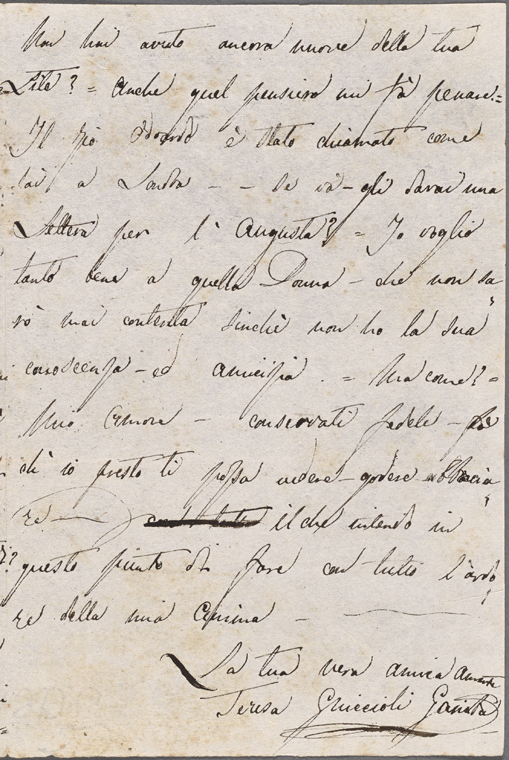 Non hai avuto ancora nuove della tua
Lite? = Anche quel pensiero mi fà penare =
Il Zio Odoardo è stato chiamato come
sai a Londra - - Se và - gli darai una
Lettera per l' Augusta? = Io voglio
tanto bene a quella Donna - che non sa
rò mai contenta sinchè non ho la sua
conoscenza - ed amicizia . = Ma come? =
Mio Amore - conservati fedele - fà
chè io presto ti possa vedere - godere abbraccia
re - il che intendo in
questo punto di fare con tutto l'ardo
re della mia Anima -
La tua vera amica amante
Teresa Guiccioli Gamba